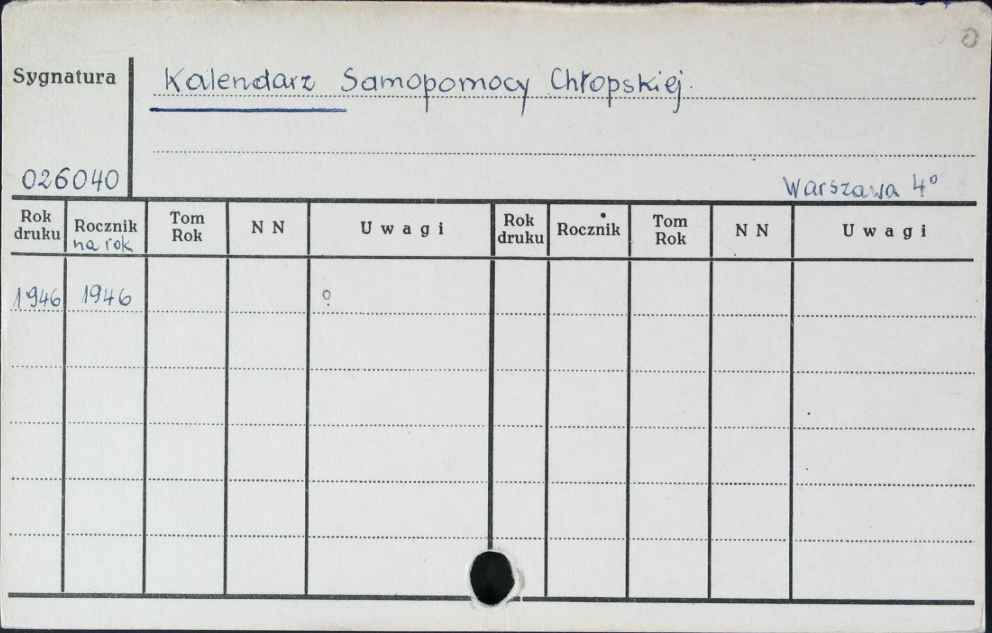 Sygnatura
Kalendarz Samopomocy Chłopskiej.
026040
Warszawa 4°
Rok druku Rocznik na rok Tom Rok N N Uwagi Rok druku Rocznik Tom Rok N N Uwagi
1946 1946